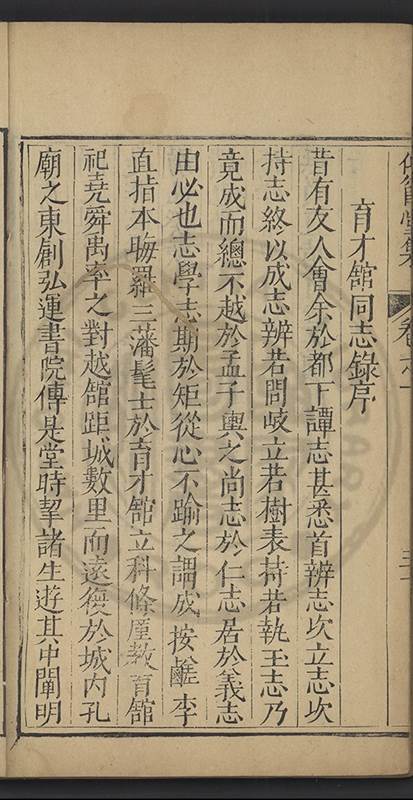 育才舘同志錄序
昔有友人會余於都下譚志甚悉首辨志次立志次
持志終以成志辨若問岐立若樹表持若執玉志乃
竟成而總不越於孟子輿之尚志於仁志居於義志
由必也志學志期於矩從心不踰之謂成按鹺李
直指本晦羅三藩髦士於育才舘立科條厘教育舘
祀堯舜禹率之對越舘距城數里而遠復於城內孔
廟之東創弘運書院傳是堂時挈諸生遊其中闡明
集
卷之